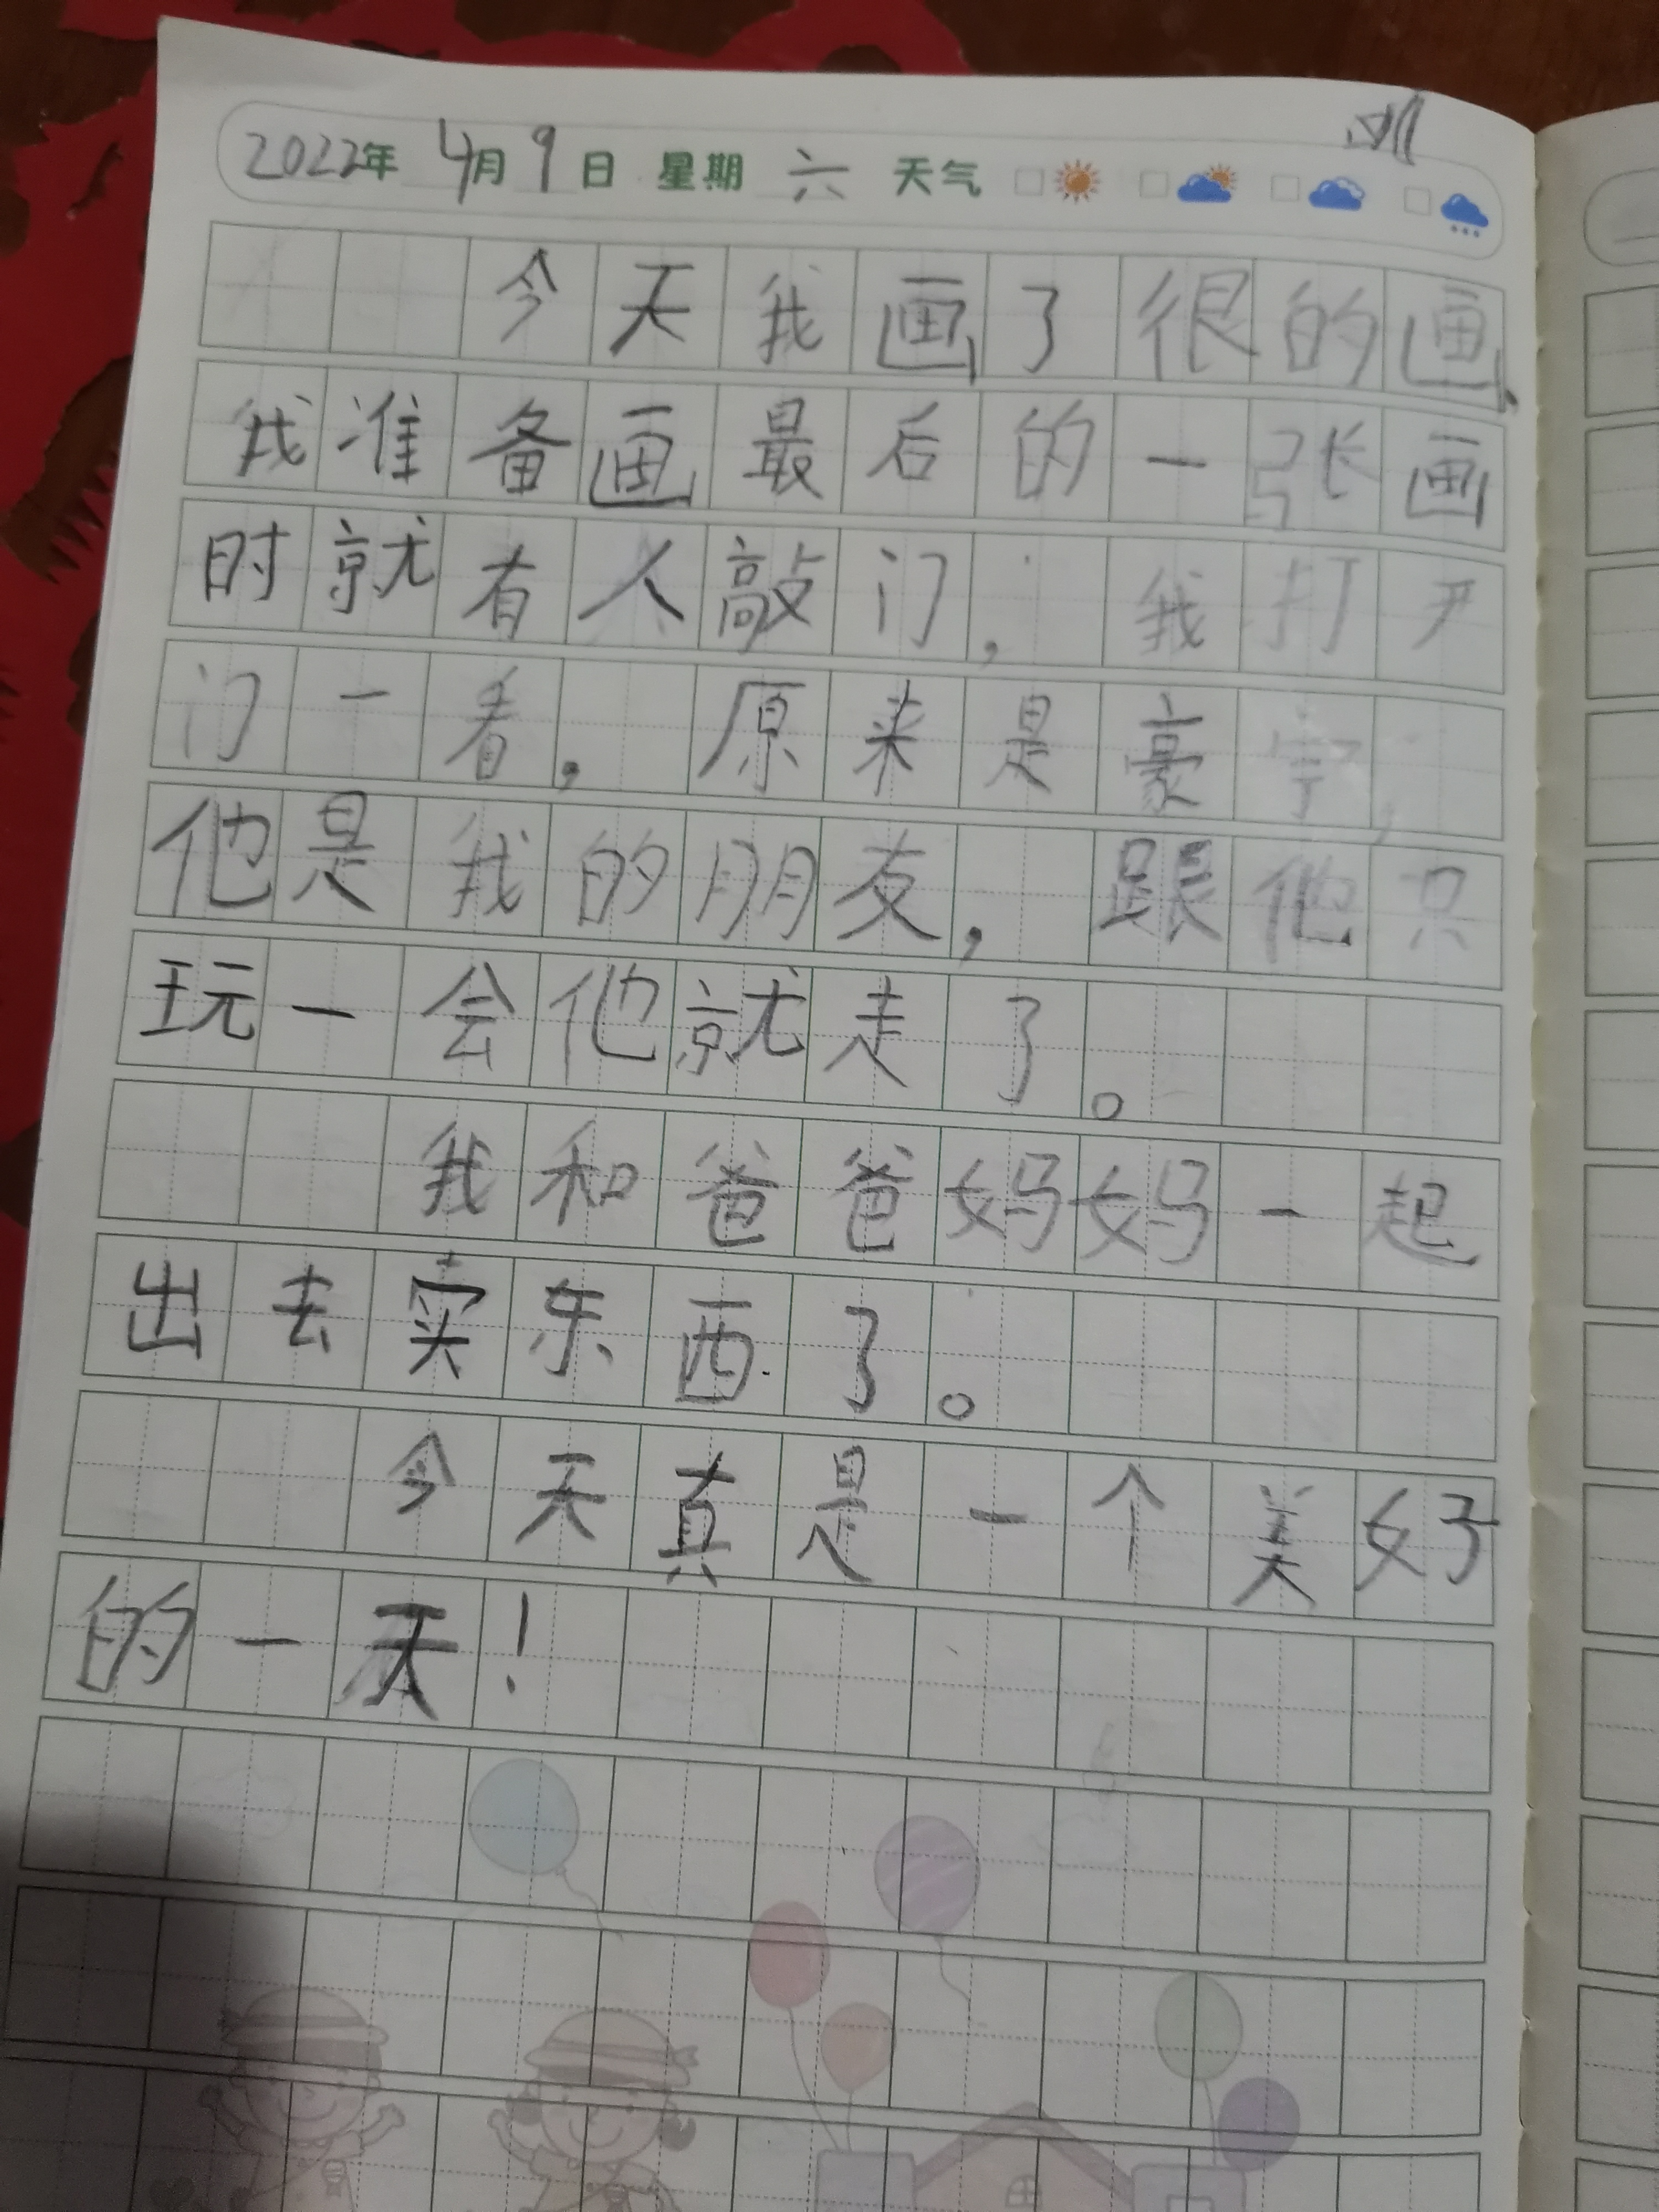 2022年 4月9日 星期 六 天气
今天我画了很的画、
我准备画最后的一张画
时就有人敲门，我打开
门一看，原来是豪宇，
他是我的朋友，跟他只
玩一会他就走了。
我和爸爸妈妈一起
出去卖东西了。
今天真是一个美好
的一天！